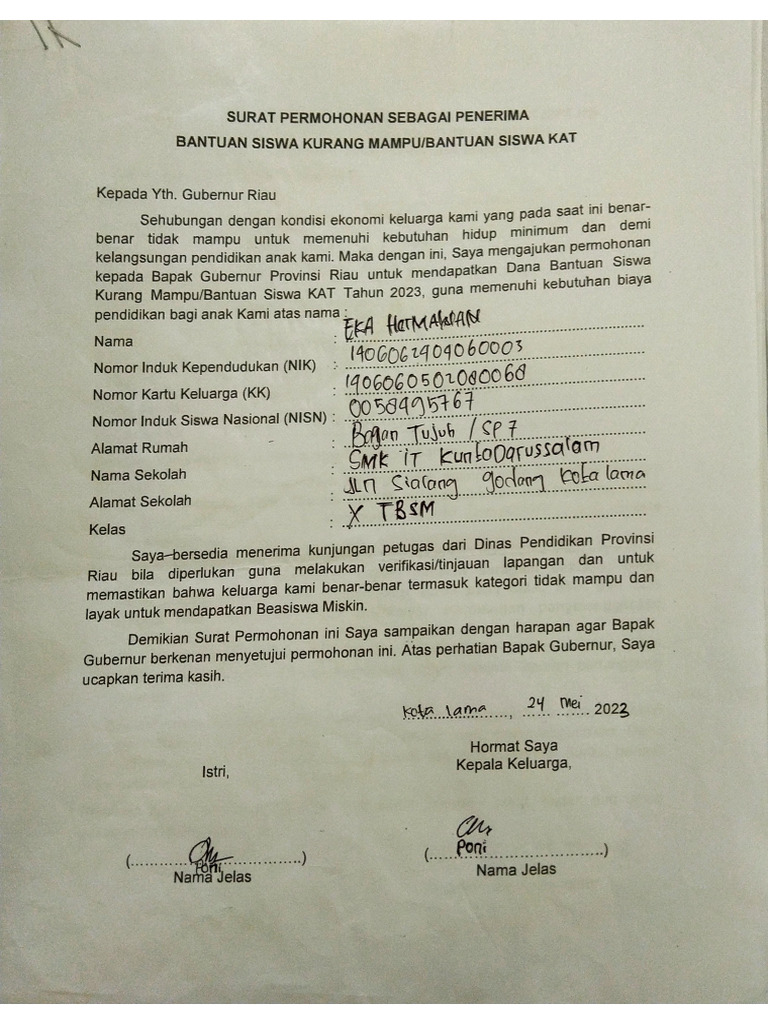 SURAT PERMOHONAN SEBAGAI PENERIMA
BANTUAN SISWA KURANG MAMPU/BANTUAN SISWA KAT
Kepada Yth. Gubernur Riau
Sehubungan dengan kondisi ekonomi keluarga kami yang pada saat ini benar-
benar tidak mampu untuk memenuhi kebutuhan hidup minimum dan demi
kelangsungan pendidikan anak kami. Maka dengan ini, Saya mengajukan permohonan
kepada Bapak Gubernur Provinsi Riau untuk mendapatkan Dana Bantuan Siswa
Kurang Mampu/Bantuan Siswa KAT Tahun 2023, guna memenuhi kebutuhan biaya
pendidikan bagi anak Kami atas nama :
Nama : EKA HERMAWAN
Nomor Induk Kependudukan (NIK) : 1406062404060003
Nomor Kartu Keluarga (KK) : 1406060502080068
Nomor Induk Siswa Nasional (NISN) : 0058495767
Alamat Rumah : Bagan Tujuh / SP 7
Nama Sekolah : SMK IT KuntoDarussalam
Alamat Sekolah : JLn Sialang godang kota lama
Kelas : X TBSM
Saya bersedia menerima kunjungan petugas dari Dinas Pendidikan Provinsi
Riau bila diperlukan guna melakukan verifikasi/tinjauan lapangan dan untuk
memastikan bahwa keluarga kami benar-benar termasuk kategori tidak mampu dan
layak untuk mendapatkan Beasiswa Miskin.
Demikian Surat Permohonan ini Saya sampaikan dengan harapan agar Bapak
Gubernur berkenan menyetujui permohonan ini. Atas perhatian Bapak Gubernur, Saya
ucapkan terima kasih.
Kota lama, 24 Mei 2023
Hormat Saya
Kepala Keluarga,
Istri,
(Poni)
Nama Jelas
(Poni)
Nama Jelas